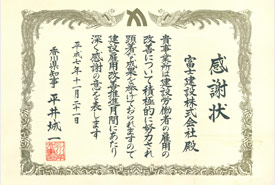 感謝状
富士建設株式会社殿
貴事業所は建設労働者の雇用の
改善について積極的に努力され
顕著な成果を挙げておられますので
建設雇用改善推進月間にあたり
深く感謝の意を表します
平成七年十一月二十一日
香川県知事 平井城一